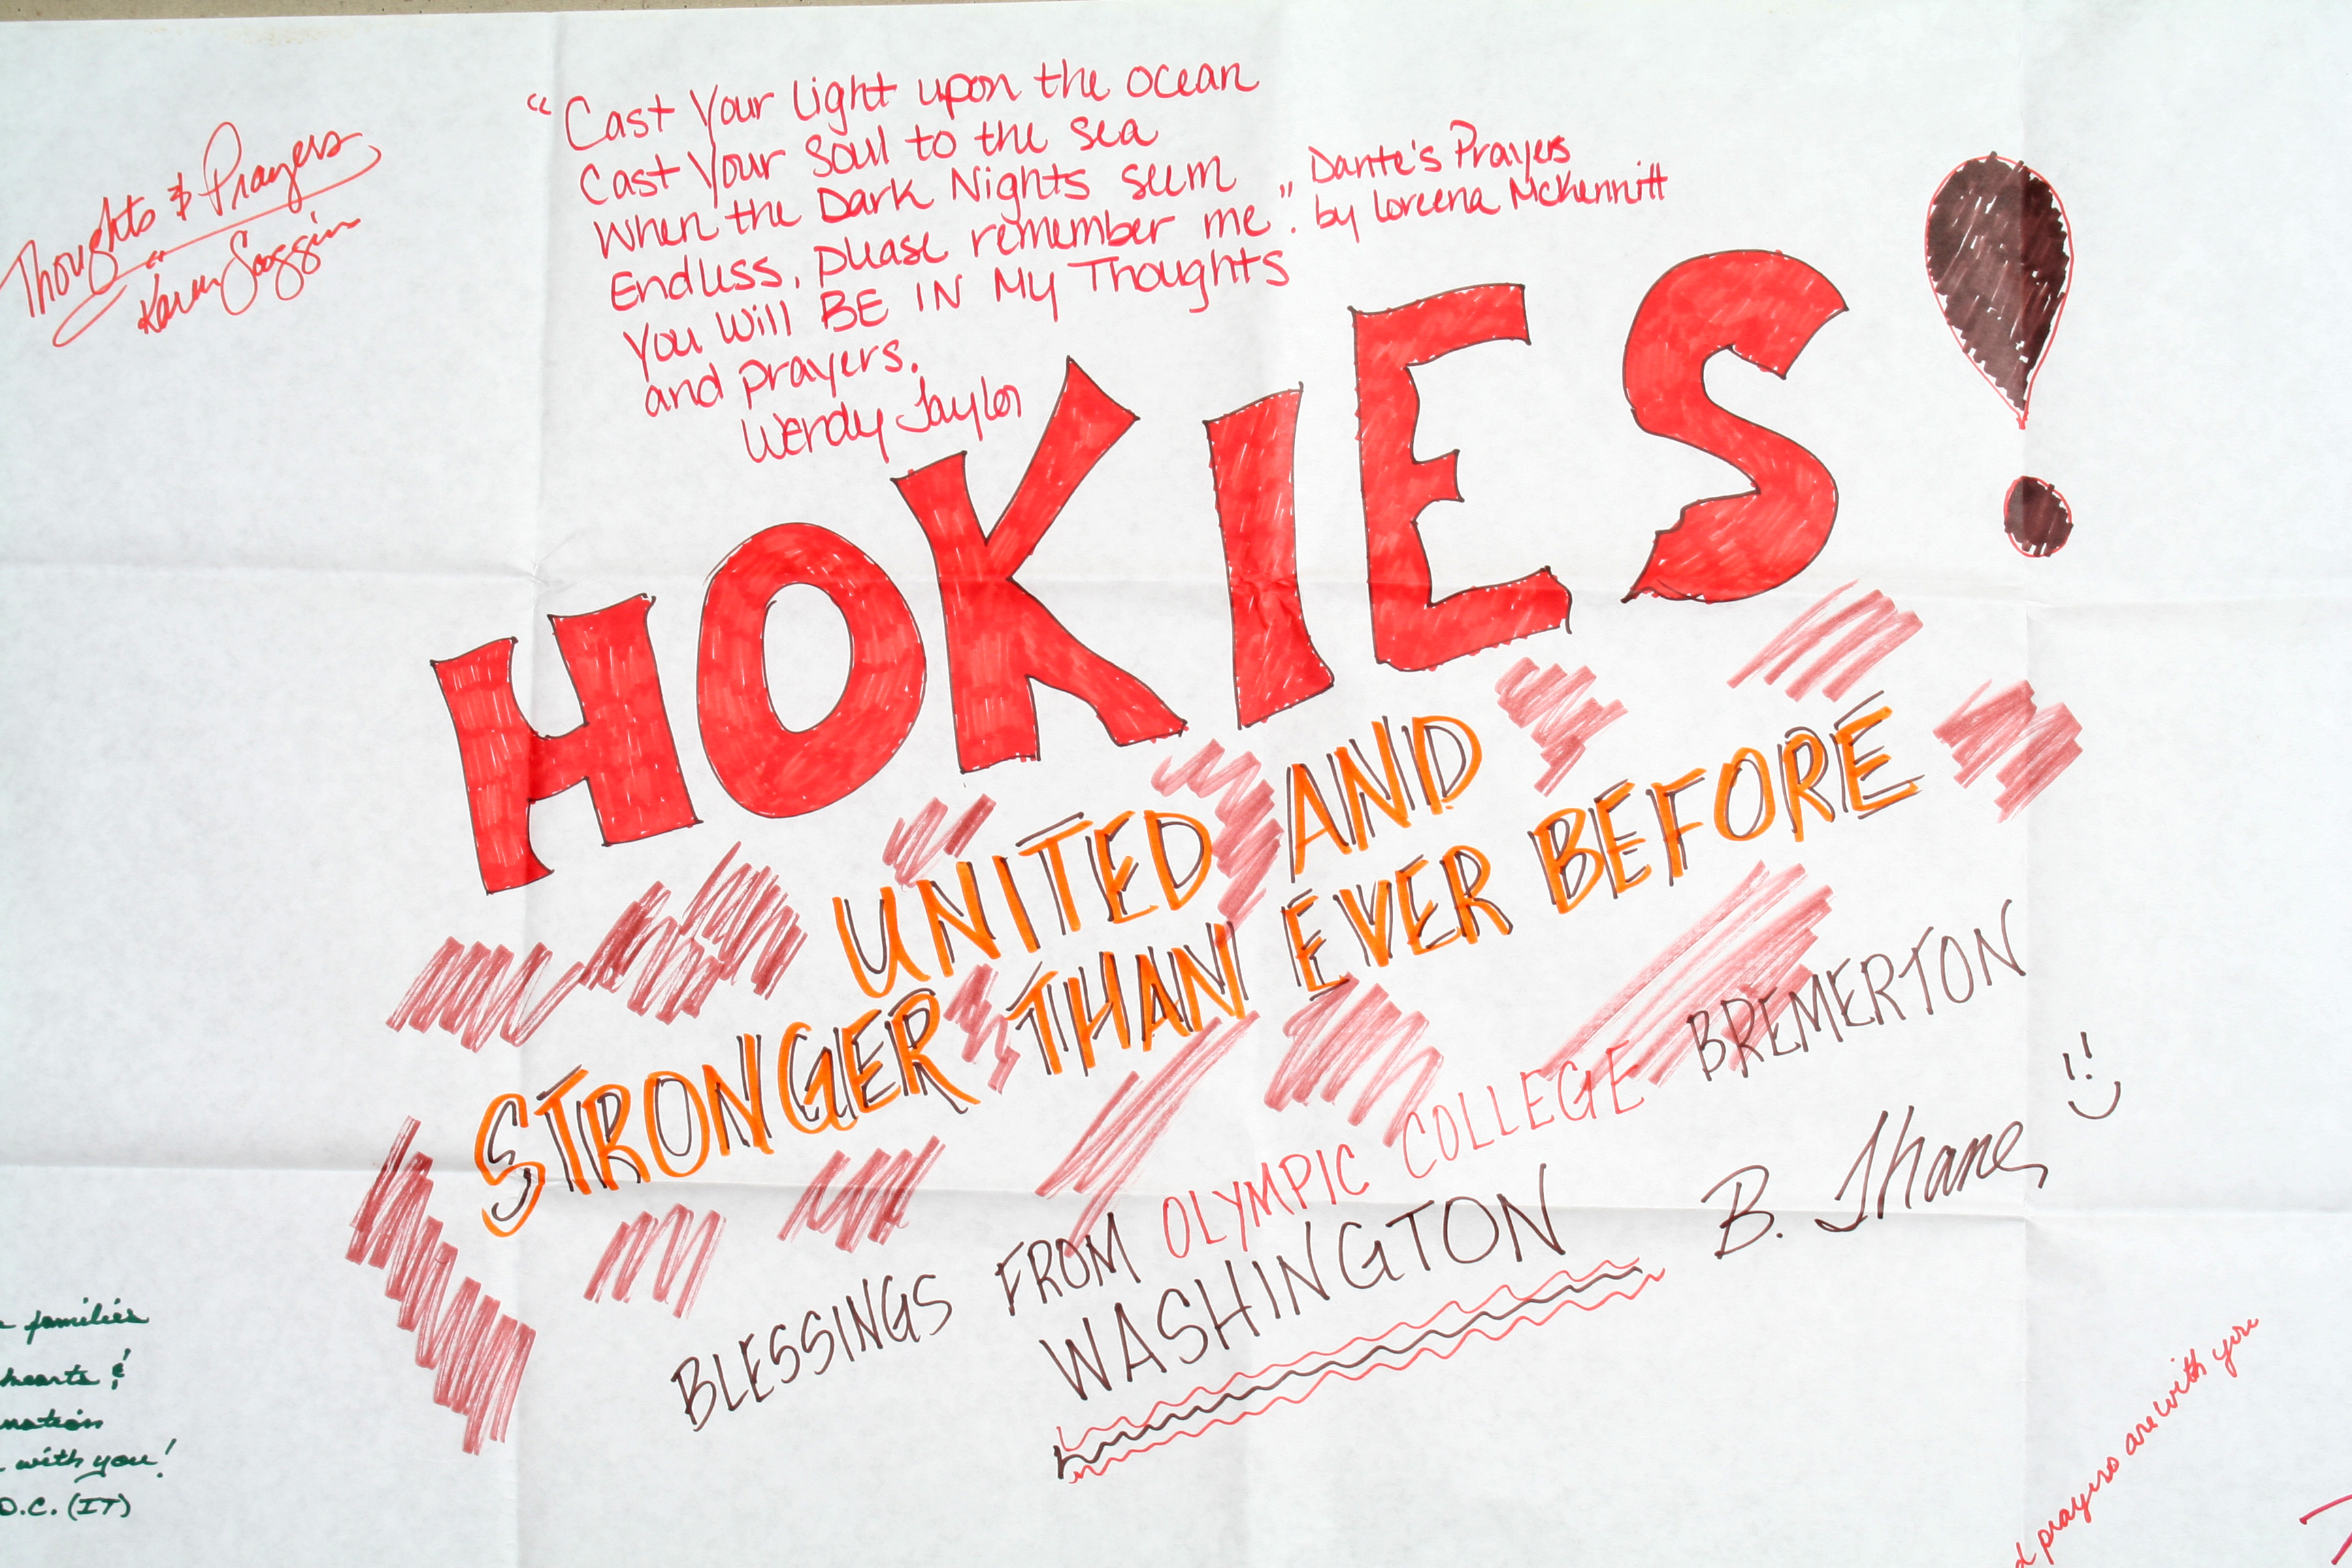 Thoughts & Prayers
Karen
"Cast Your Light upon the ocean
Cast Your Soul to the sea
When the Dark Nights seem
Endless, please remember me". Dante's Prayers
by Loreena McKennitt
You Will BE IN My Thoughts
and prayers.
Wendy Taylor
HOKIES!
UNITED AND
STRONGER THAN EVER BEFORE
BLESSINGS FROM OLYMPIC COLLEGE BREMERTON
WASHINGTON
B. Thane
families
hearts &
nation
with you!
O.C. (IT)
prayers are with you